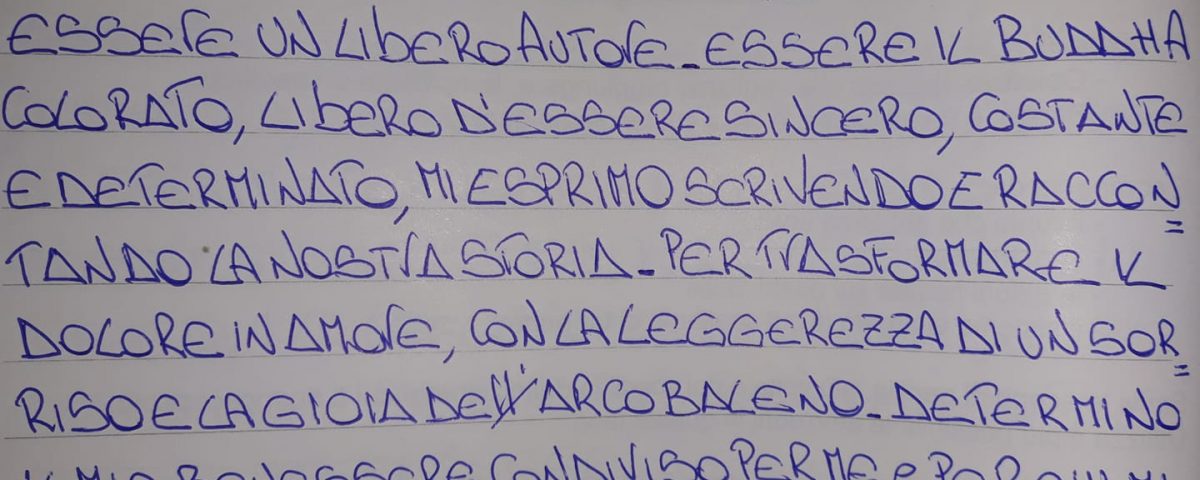 ESSERE UN LIBERO AUTORE_ESSERE IL BUDDHA
COLORATO, LIBERO D'ESSERE SINCERO, COSTANTE
E DETERMINATO, MI ESPRIMO SCRIVENDO E RACCON=
TANDO LA NOSTRA STORIA_PER TRASFORMARE IL
DOLORE IN AMORE, CON LA LEGGEREZZA DI UN SOR=
RISO E LA GIOIA DELL'ARCOBALENO_DETERMINO
IL MIO BENESSERE CONDIVISO PER ME E PER